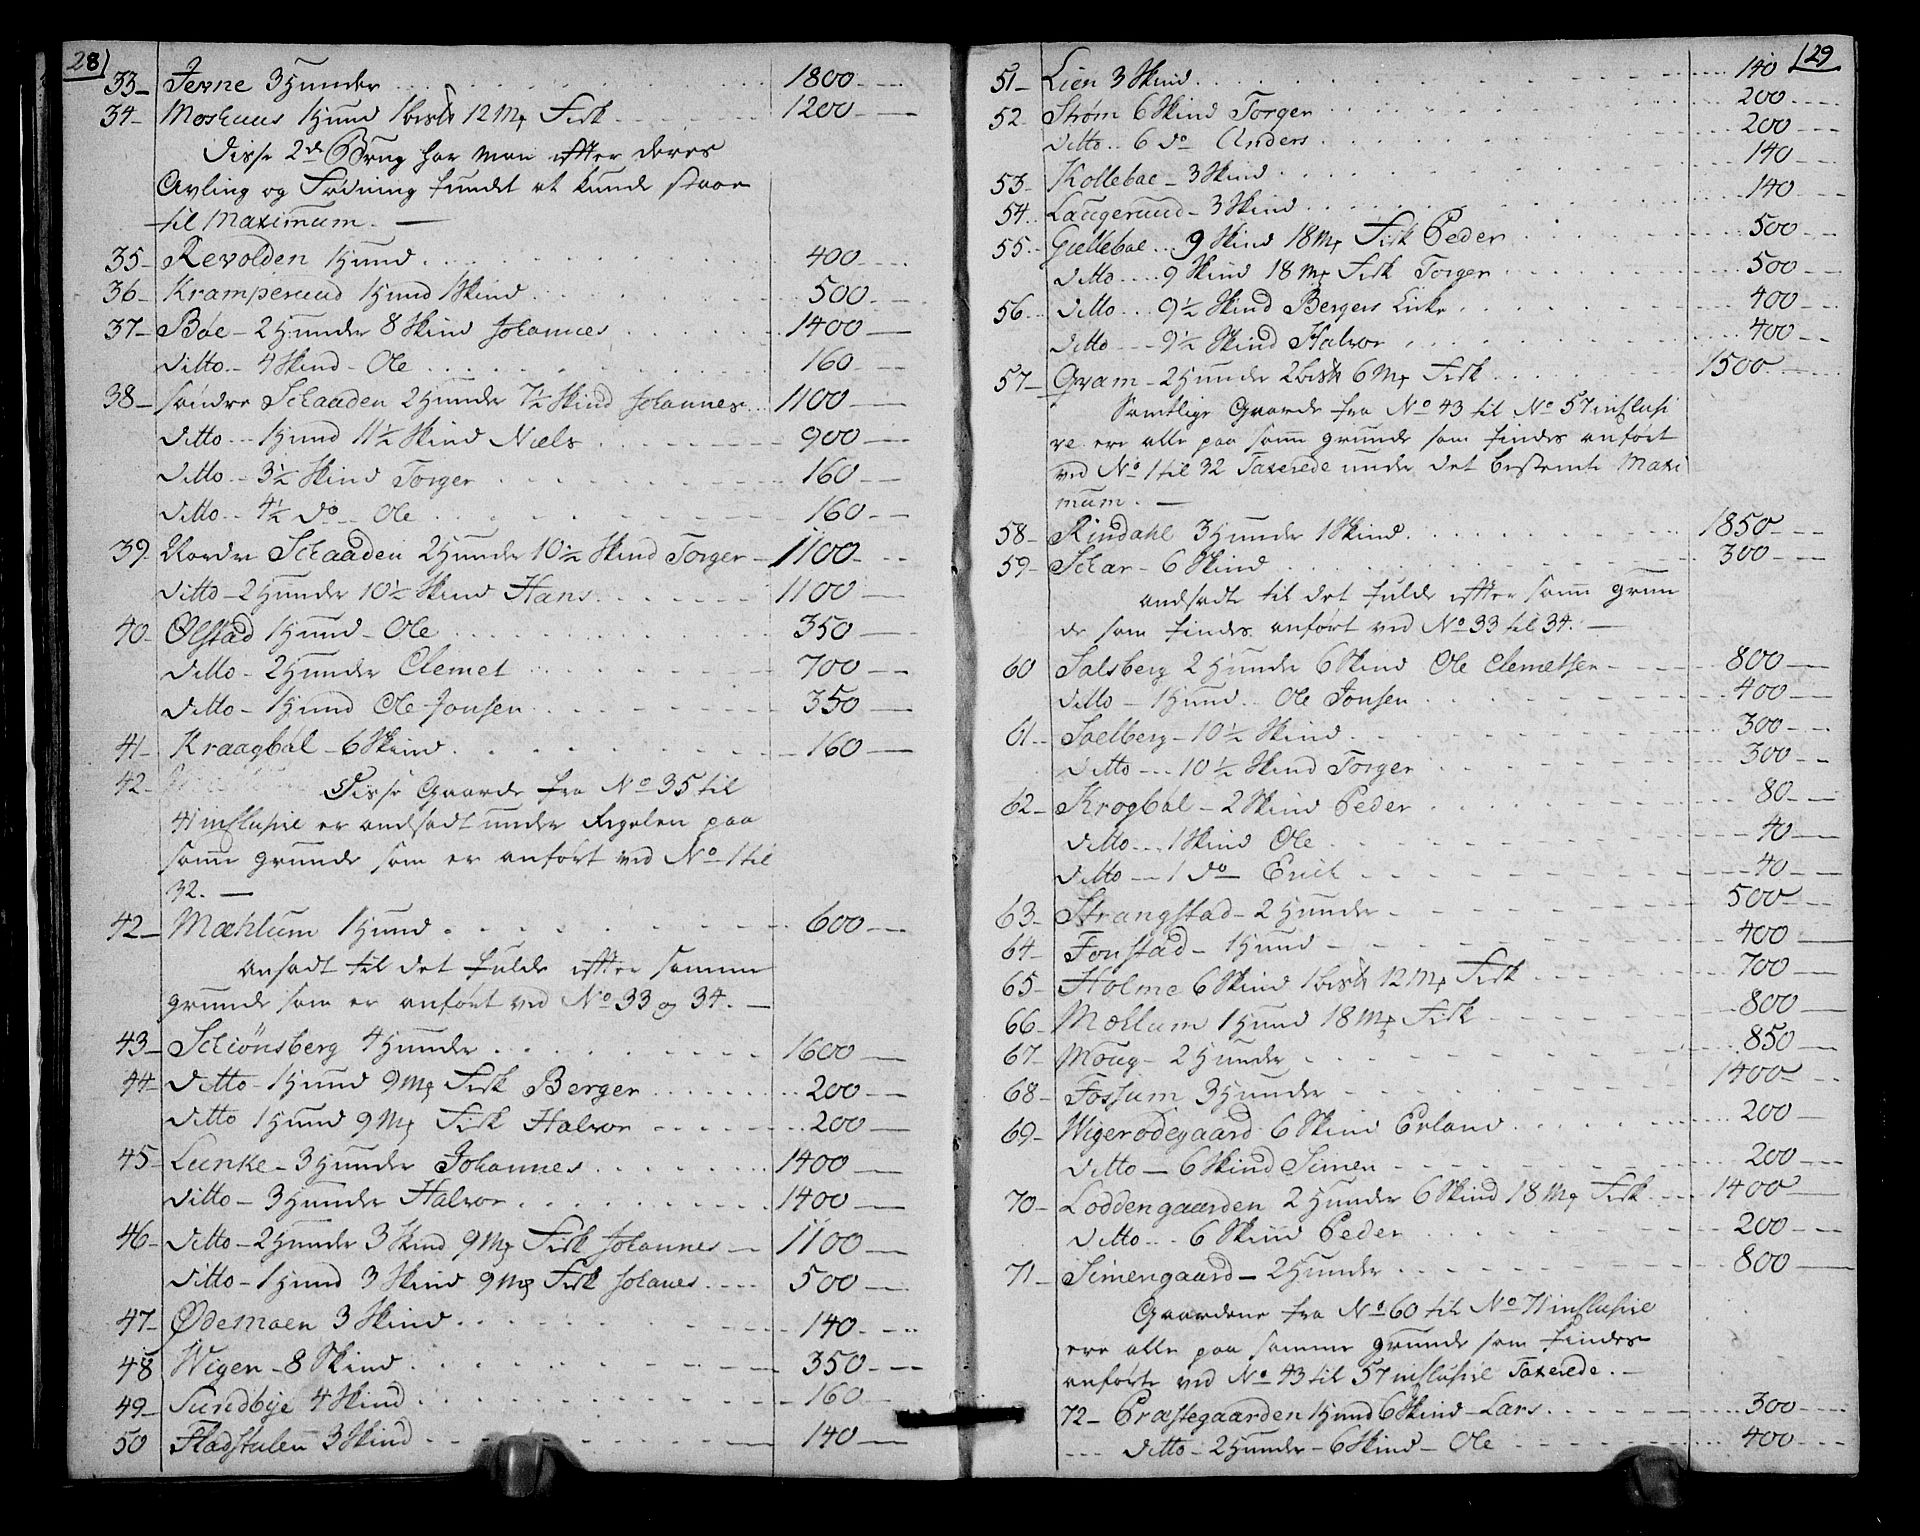 28)
33 – Jevne 3 Hunder 1800
34 – Moshuus 1 Hund 1 bisk 12 Mk Fisk 1200
Disse 2de Brug har man efter deres
Avling og Fødning fundet at kunde staae
til Maximum. —
35 – Revolden 1 Hund 400
36 – Kramperud 1 Hund 1 Skind 500
37 – Bøe – 2 Hunder 8 Skind Johannes 1400
Ditto – 4 Skind – Ole 160
38 – søndre Schaaden 2 Hunder 7½ Skind Johannes 1100
Ditto – 1 Hund 11½ Skind Næls 900
Ditto – 3½ Skind Torger 160
Ditto – 4½ do – Ole 160
39 – Nordre Schaaden 2 Hunder 10½ Skind Torger 1100
Ditto – 2 Hunder 10½ Skind Hans 1100
40 – Ølstad 1 Hund – Ole 350
Ditto – 2 Hunder Clemet 700
Ditto – 1 Hund Ole Jonsen 350
41 – Kraagbøl – 6 Skind 160
42 – Disse Gaarde fra No 35 til
41 inclusive er andsadt under Regelen paa
samme grunde som er anført ved No 1 til
32. —
42 – Mæhlum 1 Hund 600
ansadt til det fulde efter samme
grunde som er anført ved No 33 og 34. —
43 – Schiönsberg 4 Hunder 1600
44 – Ditto – 1 Hund 9 Mk Fisk Berger 200
Ditto 1 Hund 9 Mk Fisk Halvor 200
45 – Lunke – 3 Hunder Johannes 1400
Ditto – 3 Hunder Halvor 1400
46 – Ditto – 2 Hunder 3 Skind 9 Mk Fisk Johannes 1100
Ditto – 1 Hund 3 Skind 9 Mk Fisk Johanes 500
47 – Ødemoen 3 Skind 140
48 Wigen – 8 Skind 350
49 – Sundbye 4 Skind 160
50 Fladstulen 3 Skind 140
(29
51 – Lien 3 Skind 140
52 Strøm 6 Skind Torger 200
Ditto – 6 do Anders 200
53 – Kollebae – 3 Skind 140
54 – Laugerund – 3 Skind 140
55 – Gællebae – 9 Skind 18 Mk Fisk Peder 500
Ditto – 9 Skind 18 Mk Fisk Torger 500
56 – Ditto – 9½ Skind Bergers Enke 400
Ditto – 9½ Skind Halvor 400
57 – Qvam – 2 Hunder 2 bisk 6 Mk Fisk 1500
Samtlige Gaarde fra No 43 til No 57 inclusi
ve ere alle paa samme grunde som findes anført
ved No 1 til 32 Taxerede under det bestemte Maxi
mum. —
58 – Rindahl 3 Hunder 1 Skind 1850
59 – Schar – 6 Skind 300
andsadte til det fulde efter samme grun
de som findes anført ved No 33 til 34. —
60 Salsberg 2 Hunder 6 Skind Ole Clemetsen 800
Ditto – 1 Hund – Ole Jonsen 400
61 – Soelberg – 10½ Skind 300
Ditto – 10½ Skind Torger 300
62 – Krogbøl – 2 Skind Peder 80
Ditto – 1 Skind Ole 40
Ditto – 1 do Erich 40
63 – Strangstad – 2 Hunder 500
64 – Fonstad – 1 Hund 400
65 – Holme 6 Skind 1 bisk 12 Mk Fisk 700
66 – Mæhlum 1 Hund 18 Mk Fisk 800
67 – Moug – 2 Hunder 850
68 – Fossum 3 Hunder 1400
69 – Wigerødegaard 6 Skind Erland 200
Ditto – 6 Skind Simen 200
70 – Loddengaarden 2 Hunder 6 Skind 18 Mk Fisk 1400
Ditto – 6 Skind Peder 200
71 – Simengaard – 2 Hunder 800
Gaardene fra No 60 til No 71 inclusive
ere alle paa samme grunde som findes
anførte ved No 43 til 57 inclusive Taxerede. —
72 – Præstegaarden 1 Hund 6 Skind – Lars 300
Ditto – 2 Hunder – 6 Skind – Ole 400